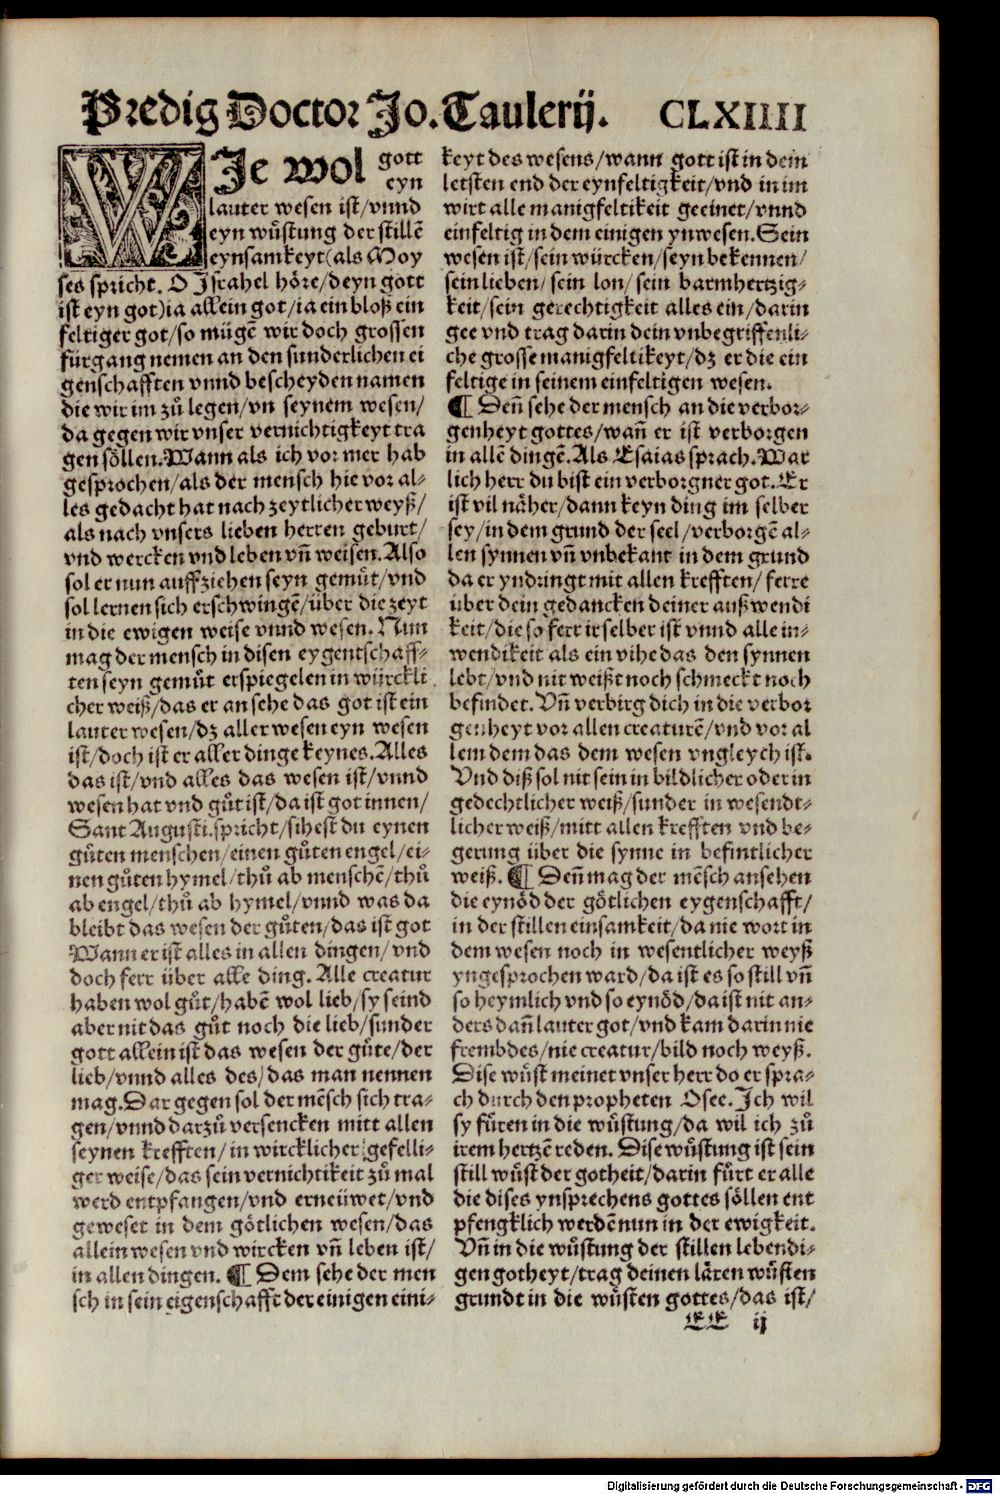 Predig Doctor Jo. Taulerij. CLXIIII
WJe wol gott
eyn
lauter wesen ist/vnnd
eyn wuͤstung der stillē
eynsamkeyt(als Moy
ses spricht. O Jsrahel hoͤre/deyn gott
ist eyn got)ia allein got/ia ein bloß ein
feltiger got/so muͤgē wir doch grossen
fuͤrgang nemen an den sunderlichen ei
genschafften vnnd bescheyden namen
die wir im zuͦ legen/vn seynem wesen/
da gegen wir vnser vernichtigkeyt tra
gen soͤllen. Wann als ich vor mer hab
gesprochen/als der mensch hie vor al⸗
les gedacht hat nach zeytlicher weyß/
als nach vnsers lieben herren geburt/
vnd wercken vnd leben vn̄ weisen. Also
sol er nun auffziehen seyn gemuͤt/vnd
sol lernen sich erschwingē/uͤber die zeyt
in die ewigen weise vnnd wesen. Nun
mag der mensch in disen eygentschaff⸗
ten seyn gemuͤt erspiegelen in wuͤrckli
cher weiß/das er an sehe das got ist ein
lauter wesen/dz aller wesen eyn wesen
ist/doch ist er aller dinge keynes. Alles
das ist/vnd alles das wesen ist/vnnd
wesen hat vnd guͦt ist/da ist got innen/
Sant Augusti. spricht/sihest du eynen
guͦten menschen/einen guͦten engel/ei⸗
nen guͦten hymel/thuͦ ab menschē/thuͦ
ab engel/thuͦ ab hymel/vnnd was da
bleibt das wesen der guͦten/das ist got
Wann er ist alles in allen dingen/vnd
doch ferr uͤber alle ding. Alle creatur
haben wol guͦt/habē wol lieb/sy seind
aber nit das guͦt noch die lieb/sunder
gott allein ist das wesen der guͤte/der
lieb/vnnd alles des/das man nennen
mag. Dar gegen sol der mēsch sich tra⸗
gen/vnnd darzuͦ versencken mitt allen
seynen krefften/in wircklicher gefelli⸗
ger weise/das sein vernichtikeit zuͦ mal
werd entpfangen/vnd erneuͤwet/vnd
geweset in dem goͤtlichen wesen/das
allein wesen vnd wircken vn̄ leben ist/
in allen dingen. ¶ Dem sehe der men
sch in sein eigenschafft der einigen eini⸗
keyt des wesens/wann gott ist in dem
letsten end der eynfeltigkeit/vnd in im
wirt alle manigfeltikeit geeinet/vnnd
einfeltig in dem einigen ynwesen. Sein
wesen ist/sein wuͤrcken/seyn bekennen/
sein lieben/sein lon/sein barmhertzig⸗
keit/sein gerechtigkeit alles ein/darin
gee vnd trag darin dein vnbegriffenli⸗
che grosse manigfeltikeyt/dz er die ein
feltige in seinem einfeltigen wesen.
¶ Deñ sehe der mensch an die verbor⸗
genheyt gottes/wañ er ist verborgen
in allē dingē. Als Esaias sprach. War
lich herr du bist ein verborgner got. Er
ist vil naͤher/dann keyn ding im selber
sey/in dem grund der seel/verborgē al⸗
len synnen vn̄ vnbekant in dem grund
da er yndringt mit allen krefften/ferre
uͤber dein gedancken deiner außwendi
keit/die so ferr ir selber ist vnnd alle in⸗
wendikeit als ein vihe das den synnen
lebt/vnd nit weißt noch schmeckt noch
befindet. Vn̄ verbirg dich in die verbor
genheyt vor allen creaturē/vnd vor al
lem dem das dem wesen vngleych ist.
Vnd diß sol nit sein in bildlicher oder in
gedechtlicher weiß/sunder in wesendt⸗
licher weiß/mitt allen krefften vnd be⸗
gerung uͤber die synne in befintlicher
weiß. ¶ Deñ mag der mēsch ansehen
die eynoͤd der goͤtlichen eygenschafft/
in der stillen einsamkeit/da nie wort in
dem wesen noch in wesentlicher weyß
yngesprochen ward/da ist es so still vn̄
so heymlich vnd so eynoͤd/da ist nit an⸗
ders dañ lauter got/vnd kam darin nie
frembdes/nie creatur/bild noch weyß.
Dise wuͤst meinet vnser herr do er spra⸗
ch durch den propheten Osee. Jch wil
sy fuͤren in die wuͤstung/da wil ich zuͦ
irem hertzē reden. Dise wuͤstung ist sein
still wuͤst der gotheit/darin fuͤrt er alle
die dises ynsprechens gottes soͤllen ent
pfengklich werdē nun in der ewigkeit.
Vn̄ in die wuͤstung der stillen lebendi⸗
gen gotheyt/trag deinen laͤren wuͤsten
grundt in die wuͤsten gottes/das ist/
EE ij
Digitalisierung gefördert durch die Deutsche Forschungsgemeinschaft - DFG